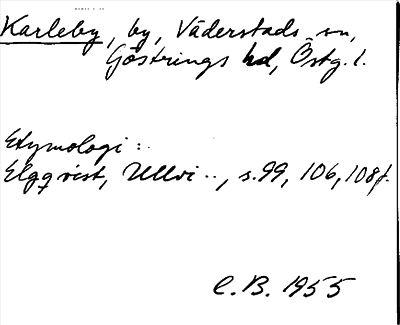 Karleby, by, Väderstads sn,
Göstrings hd, Östg. l.
Etymologi:
Elgqvist, Ullvi.., s. 99, 106, 108f.
C.B. 1955